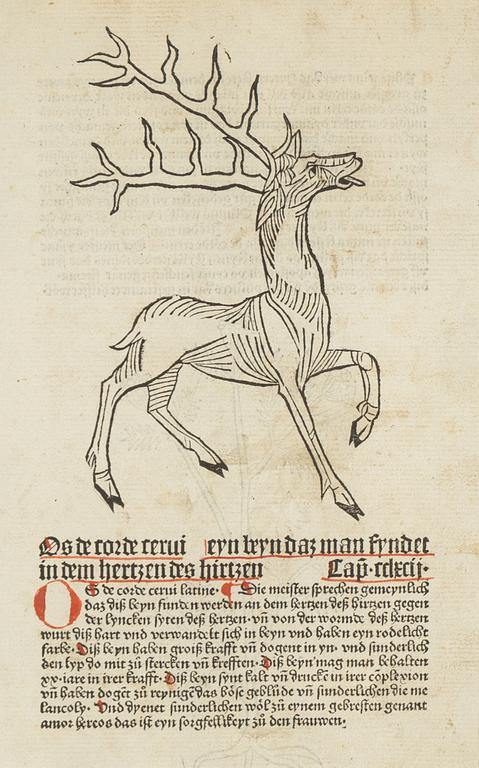 Os de corde cerui eyn beyn daz man fyndet
in dem hertzen des hirtzen Cap̄ · cclxcij·
OS de corde cerui latine· Die meister sprechen gemeynlich
daz diß beyn funden werden an dem hertzen deß hirtzen gegen
der lyncken syten deß hertzen· vn̄ von der wormde deß hertzen
wurt diß hart vnd verwandelt sich in beyn vnd haben eyn rodelicht
farbe· Diß beyn haben groiß krafft vn̄ dogent in yn· vnd sunderlich
den lyp do mit zů stercken vn̄ krefften· Diß beyn mag man behalten
xx·iare in irer krafft· Diß beyn synt kalt vn̄ drucken in irer cōplexion
vn̄ haben dogēt zů reynigē das böse geblůde vn̄ sunderlichen die me
lancoly· Vnd dyenet sunderlichen wöl zů eynem gebresten genant
amor hereos das ist eyn sorgfellikeyt zů den frauwen·